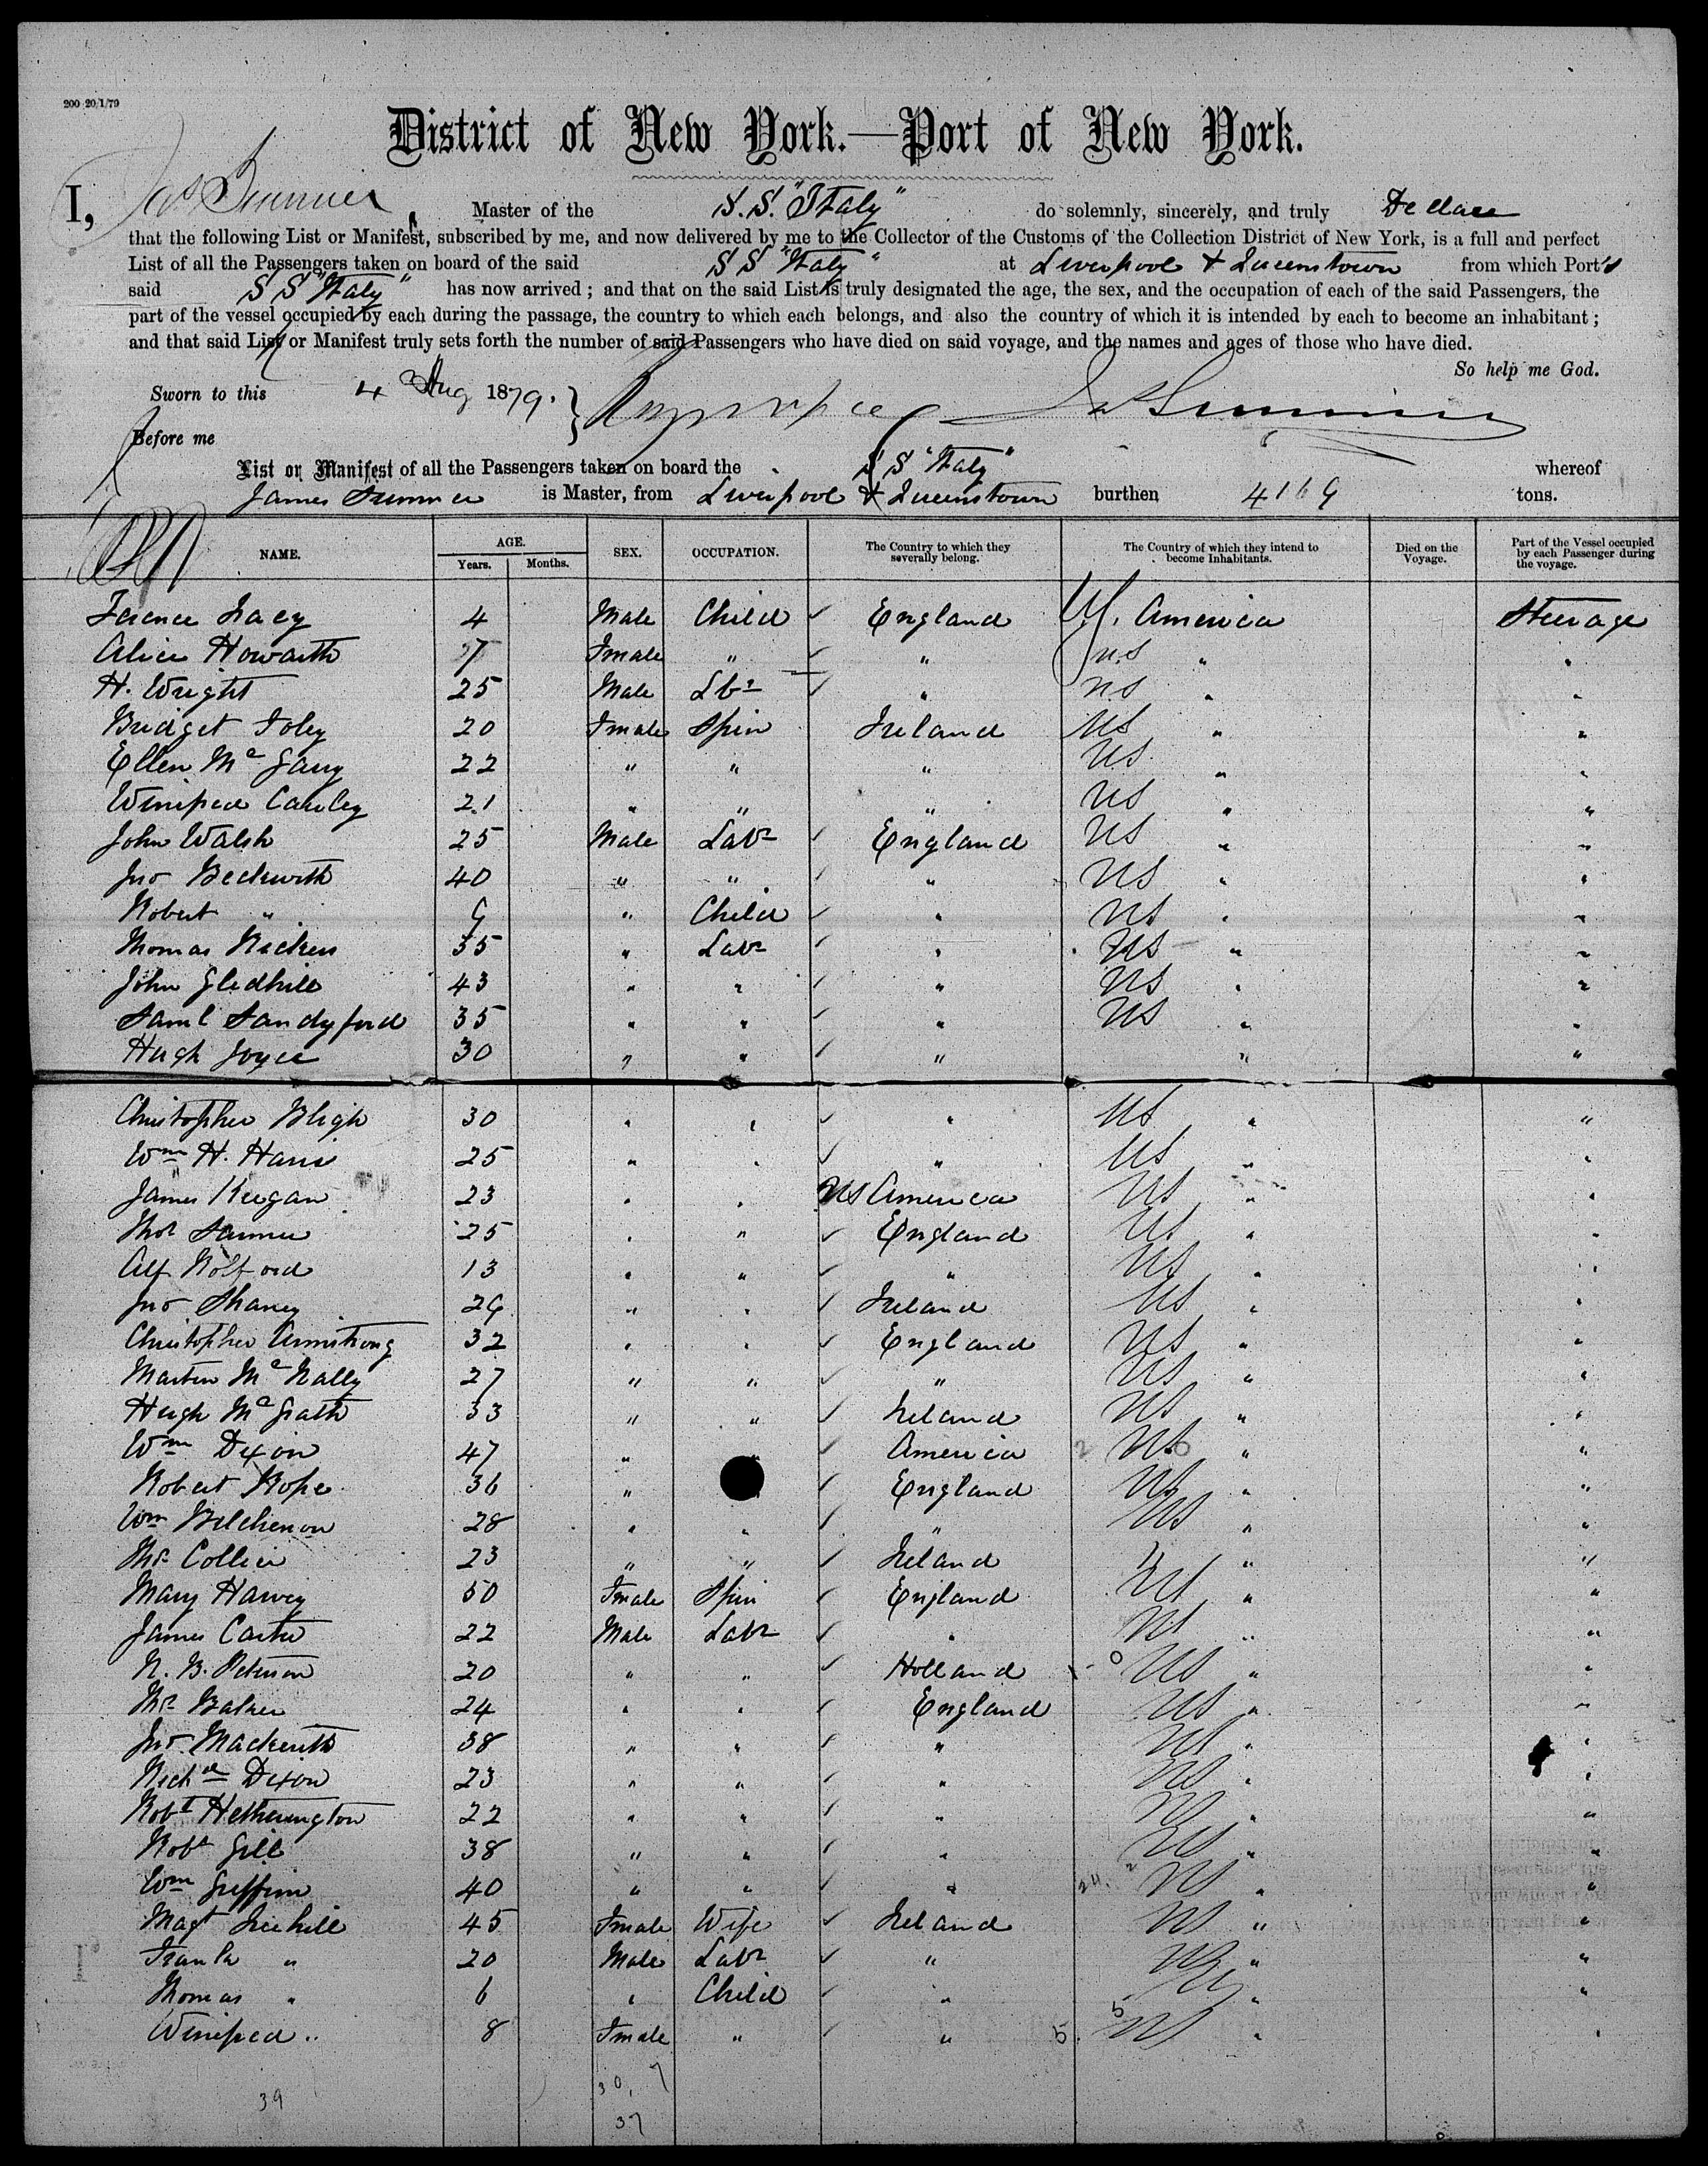 200 20/1/79
District of New York.—Port of New York.
I, Jas Sumner, Master of the S.S. "Italy" do solemnly, sincerely, and truly Declare
that the following List or Manifest, subscribed by me, and now delivered by me to the Collector of the Customs of the Collection District of New York, is a full and perfect
List of all the Passengers taken on board of the said S S "Italy" at Liverpool & Queenstown from which Port's
said S S "Italy" has now arrived; and that on the said List is truly designated the age, the sex, and the occupation of each of the said Passengers, the
part of the vessel occupied by each during the passage, the country to which each belongs, and also the country of which it is intended by each to become an inhabitant;
and that said List or Manifest truly sets forth the number of said Passengers who have died on said voyage, and the names and ages of those who have died.
So help me God.
Sworn to this 4 Aug 1879. Jas Sumner
Before me
List or Manifest of all the Passengers taken on board the S S "Italy" whereof
James Sumner is Master, from Liverpool & Queenstown burthen 4169 tons.
NAME. AGE. Years. Months. SEX. OCCUPATION. The Country to which they severally belong. The Country of which they intend to become Inhabitants. Died on the Voyage. Part of the Vessel occupied by each Passenger during the voyage.
Terence Lacy 4 Male Child England America Steerage
Alice Howarth 7 Female " " US " "
H. Wright 25 Male Lbr " US " "
Bridget Foley 20 Female Spin Ireland US " "
Ellen Mc Garry 22 " " " US " "
Winifred Cawley 21 " " " US " "
John Walsh 25 Male Labr England US " "
Jno Beckwith 40 " " " US " "
Robert " 9 " Child " US " "
Thomas 35 " Labr " US " "
John Gledhill 43 " " " US " "
Saml Sandyford 35 " " " US " "
Hugh Joyce 30 " " " " "
Christopher Bligh 30 " " " US " "
Wm H. Harris 25 " " " US " "
James Keegan 23 " " US America US " "
Thos 25 " " England US " "
Alf 13 " " " US " "
Jno 29 " " Ireland US " "
Christopher Armstrong 32 " " England US " "
Martin Mc Nally 27 " " " US " "
Hugh Mc Grath 33 " " Ireland US " "
Wm Dixon 47 " " America US " "
Robert Rope 36 " England US " "
Wm 28 " " " US " "
Thos Collier 23 " " Ireland " "
Mary Harvey 50 Female Spin England US " "
James Carter 22 Male Labr " US " "
N. B. Peterson 20 " " Holland US " "
Thos 24 " " England US " "
Jno Mackerith 38 " " " US " "
Dixon 23 " " " US " "
Robt Hetherington 22 " " " US " "
Robt Gill 38 " " " US " "
Wm Griffin 40 " " " US " "
Magt 45 Female Wife Ireland US " "
Frank " 20 Male Labr " US " "
Thomas " 6 " Child " US " "
Winifred " 8 Female " " US " "
39
30, 7
37